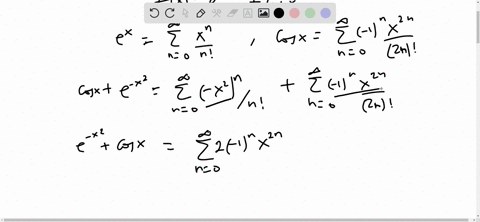 e^x = ∞ Σ n=0 x^n / n! , Cosx = ∞ Σ n=0 (-1)^n x^{2n} / (2n)!
Cosx + e^{-x^2} = ∞ Σ n=0 (-x^2)^n / n! + ∞ Σ n=0 (-1)^n x^{2n} / (2n)!
e^{-x^2} + Cosx = ∞ Σ n=0 2(-1)^n x^{2n}